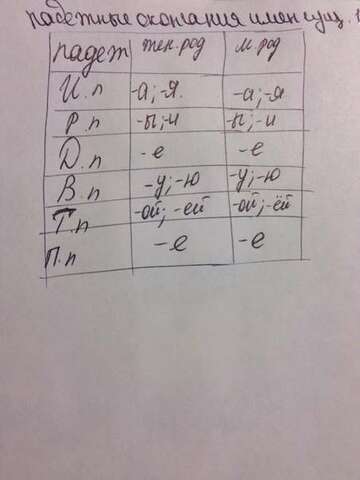 падежные окончания имен сущ. 1
падеж жен.род м.род
И.п -а;-я. -а;-я
Р.п -ы;-и -ы;-и
Д.п -е -е
В.п -у;-ю -у;-ю
Т.п -ой;-ей -ой;-ёй
П.п -е -е